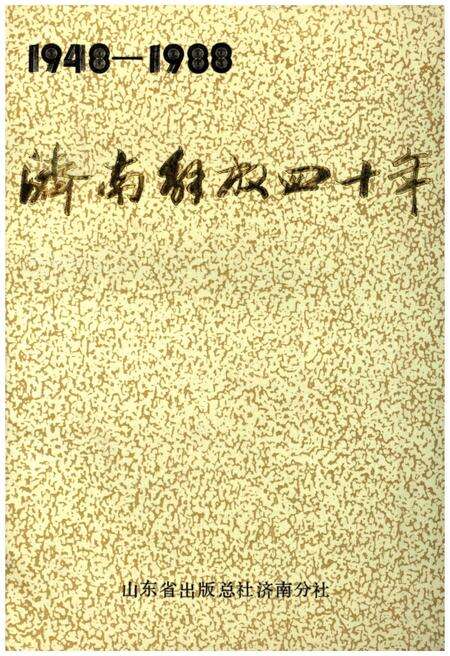 1948—1988
济南解放四十年
山东省出版总社济南分社